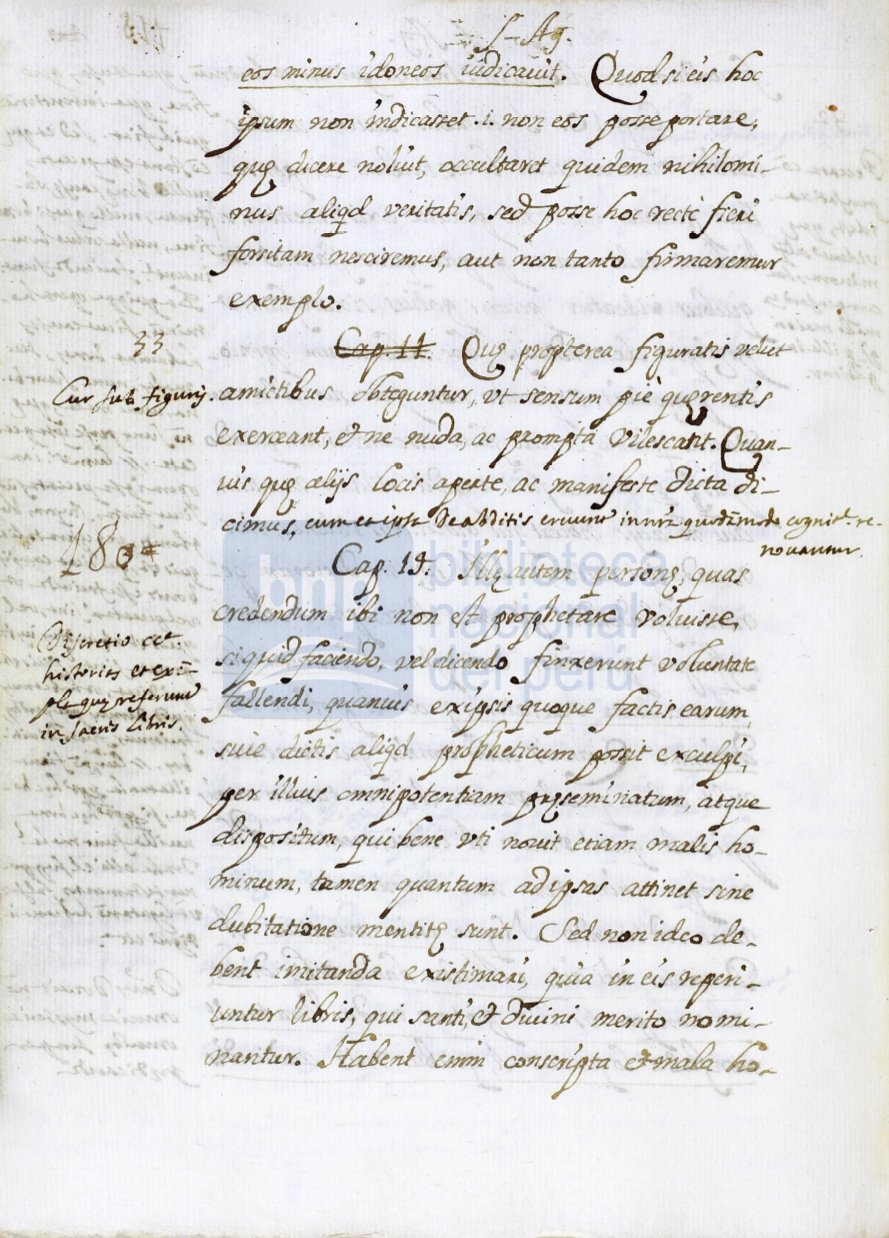 S. Ag.
eos minus idoneos iudicauit. Quod si eis hoc
ipsum non indicasset .i. non eos posse portare,
quę dicere noluit, occultaret quidem nihilomi-
nus aliqd veritatis, sed posse hoc rectè fieri
forsitam nesciremus, aut non tanto firmaremur
exemplo.
33
Cap. 11. Quę propterea figuratis velut
Cur sub figuris.
amictibus obteguntur, vt sensum piè quęrentis
exerceant, et ne nuda, ac prompta vilescant. Quan-
uis quę alijs locis aperte, ac manifeste dicta di-
cimus, cum et ipsa de abditis eruunt in nrã quodãmodo cognit. re-
nouantur.
180
Cap. 19. Illę autem personę, quas
credendum ibi non est prophetare voluisse,
Discretio cca.
historias et exẽ-
pla quę referunt
in sacris libris.
si quid faciendo, vel dicendo finxerunt voluntate
fallendi, quanuis ex ipsis quoque factis earum,
suie dictis aliqd propheticum possit exculpi,
per illius omnipotentiam pręseminatum, atque
dispositum, qui bene vti nouit etiam malis ho-
minum, tamen quantum ad ipsas attinet sine
dubitatione mentitę sunt. Sed non ideo de-
bent imitanda existimari, quia in eis reperi-
untur libris, qui santi, et diuini merito nomi-
nantur. Habent enim conscripta et mala ho-
biblioteca
nacional
del perú